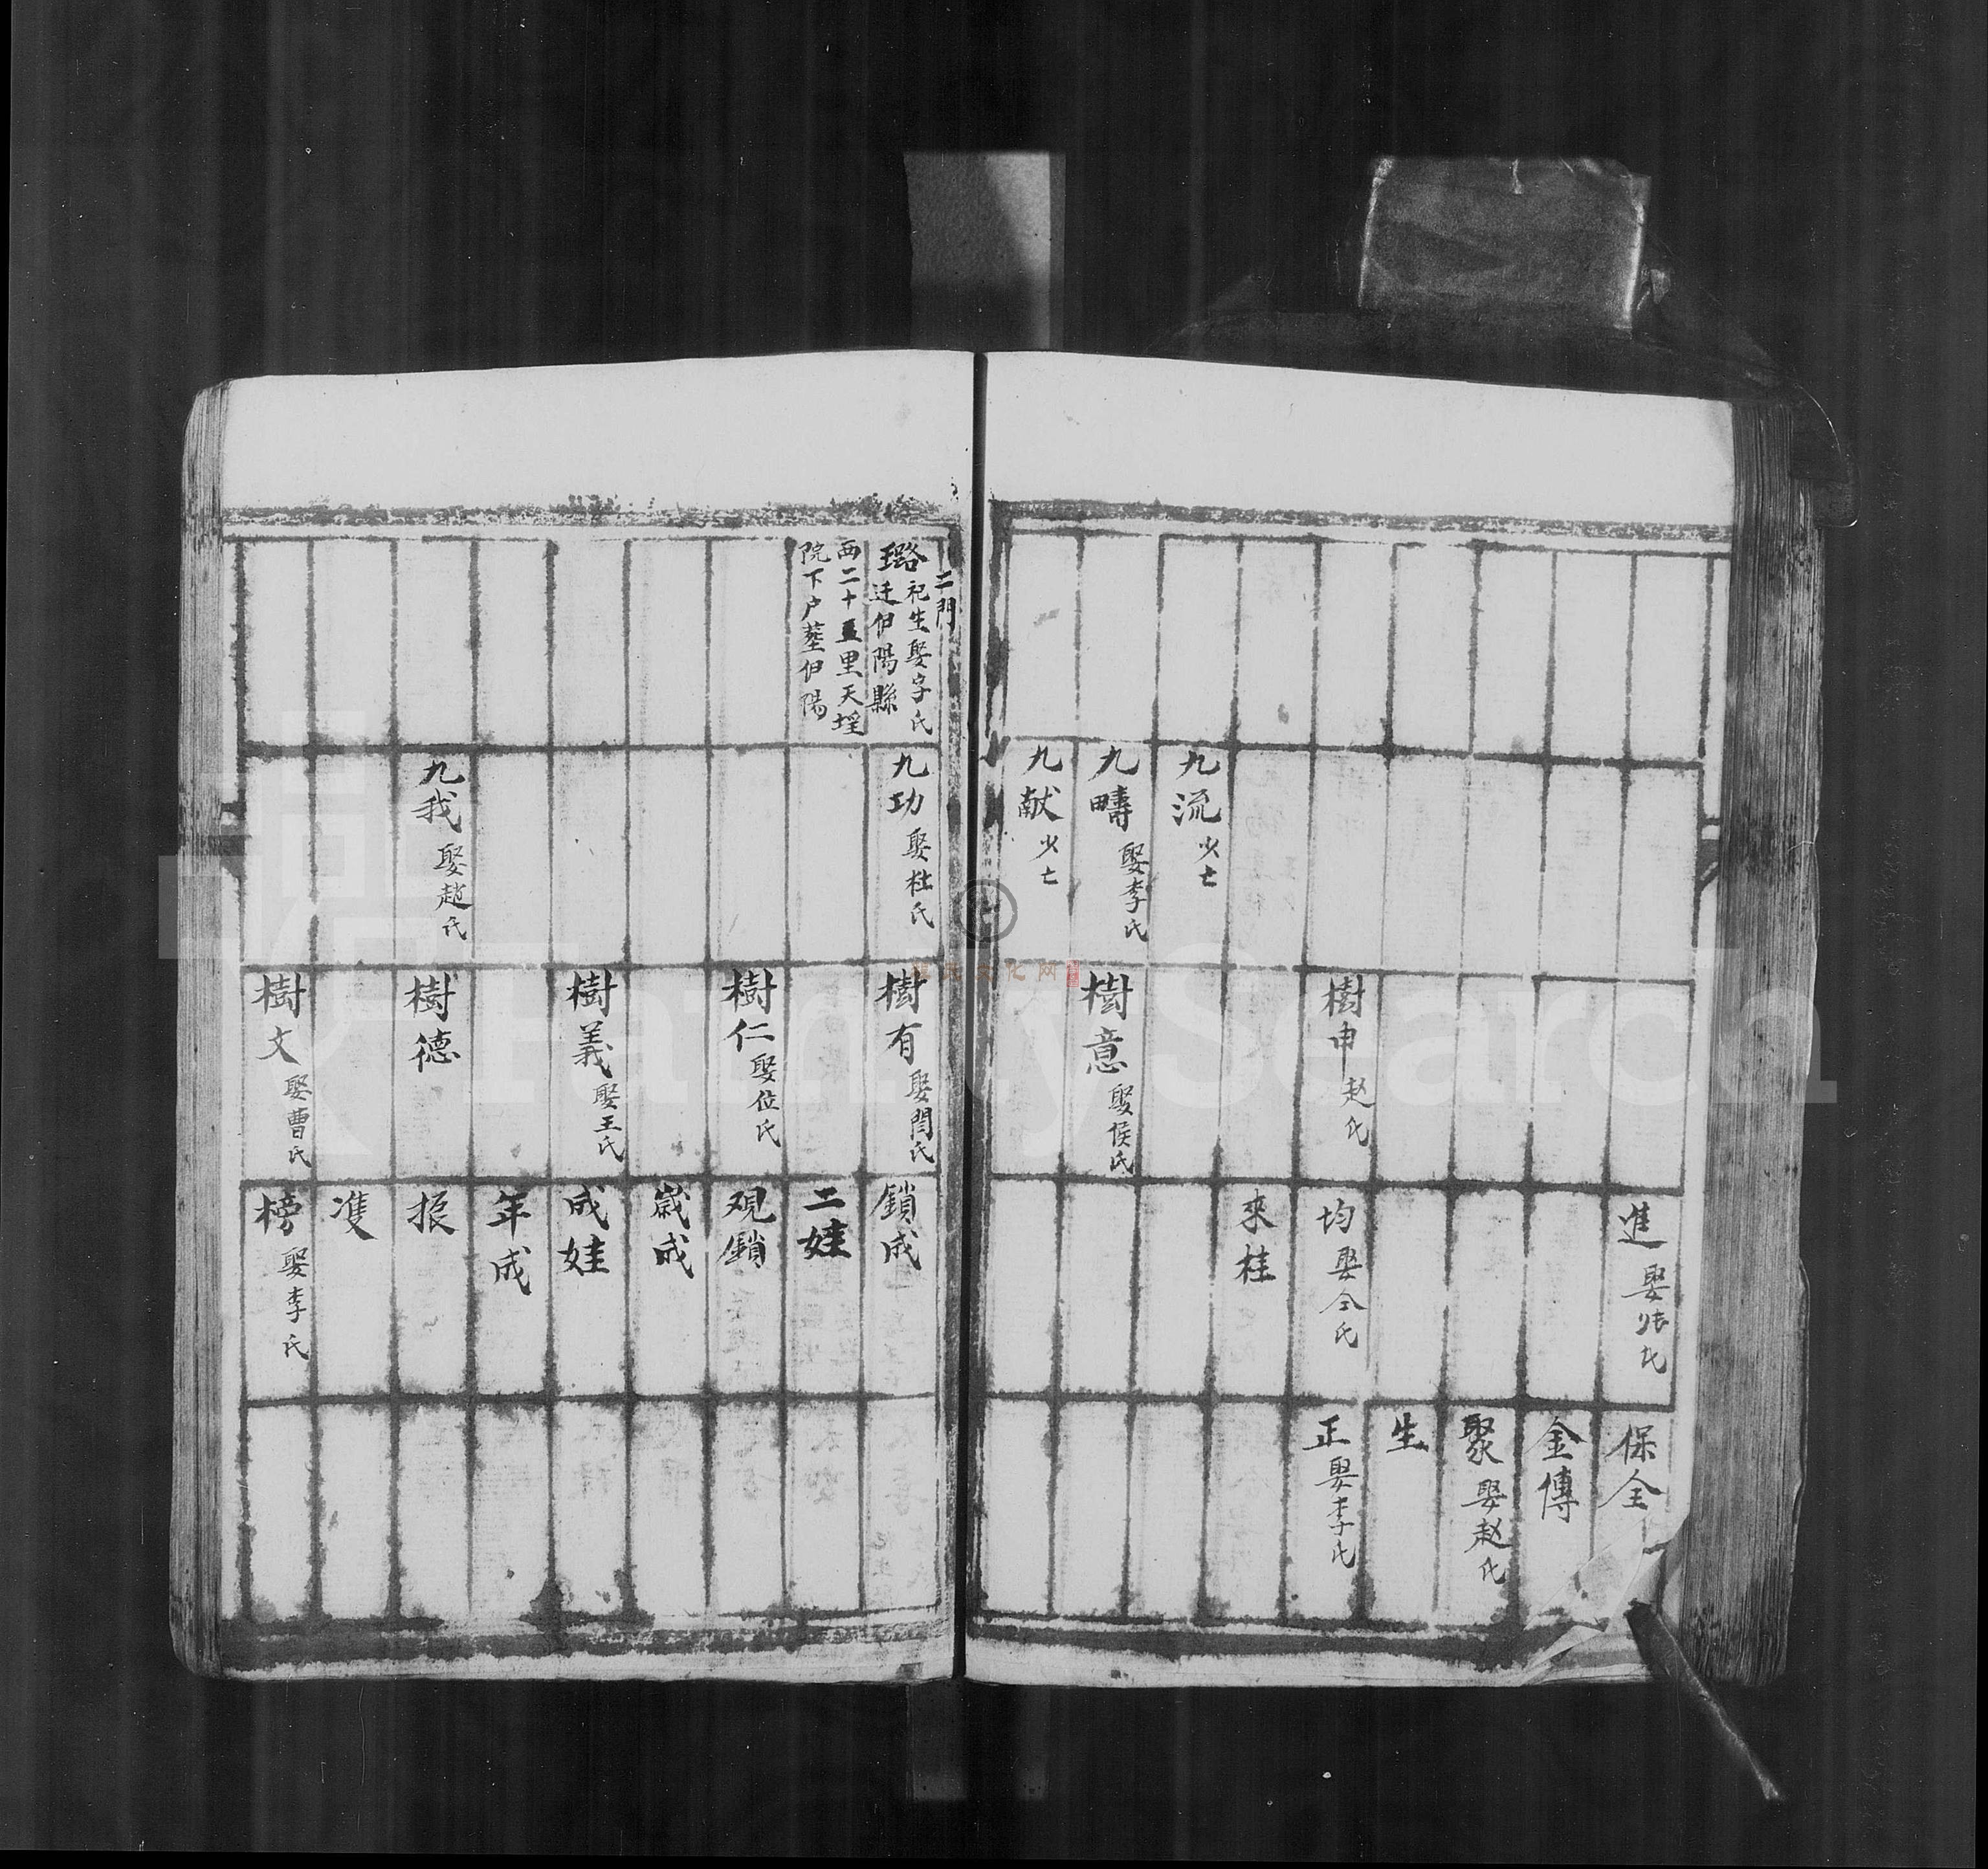 九流 少亡
九疇 娶李氏
九献 少亡
樹申 赵氏
樹意 娶侯氏
進 娶张氏
均 娶仝氏
來桂
保全
金傳
聚 娶赵氏
生
正 娶李氏
二門
璐 祀生娶字氏
迁伊陽縣
西二十五里天埕
院下户塟伊陽
九功 娶杜氏
九我 娶趙氏
樹有 娶閆氏
樹仁 娶位氏
樹義 娶王氏
樹德
樹文 娶曹氏
鎖成
二娃
观鎖
歲成
成娃
年成
振
準
榜 娶李氏
FamilySearch